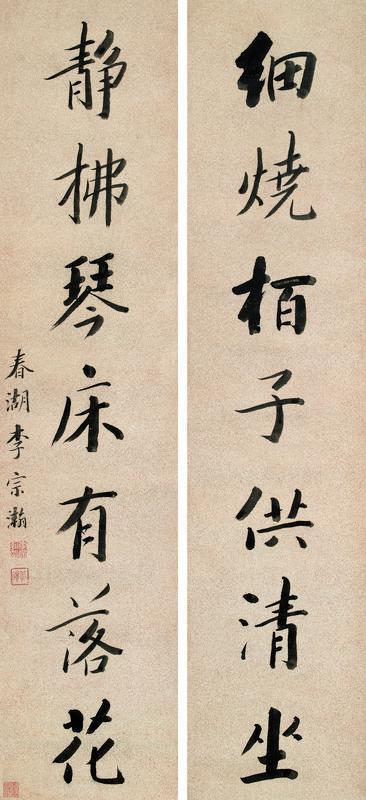 细燒栢子供清坐
静拂琴床有落花
春湖李宗瀚